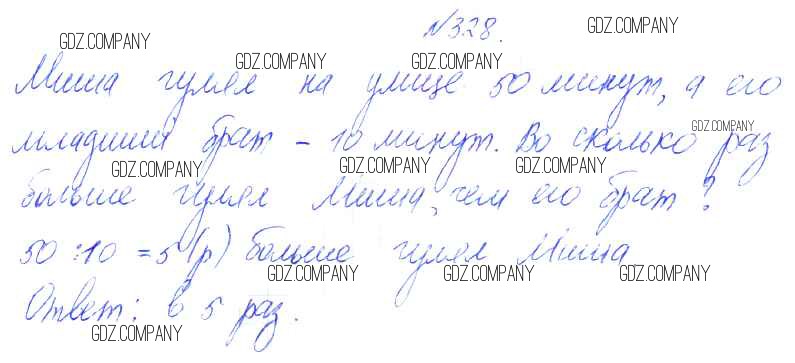 №328.
Миша гулял на улице 50 минут, а его
младший брат - 10 минут. Во сколько раз
больше гулял Миша, чем его брат?
50:10=5(р) больше гулял Миша
Ответ: в 5 раз.
GDZ.COMPANY
GDZ.COMPANY
GDZ.COMPANY
GDZ.COMPANY
GDZ.COMPANY
GDZ.COMPANY
GDZ.COMPANY
GDZ.COMPANY
GDZ.COMPANY
GDZ.COMPANY
GDZ.COMPANY
GDZ.COMPANY
GDZ.COMPANY